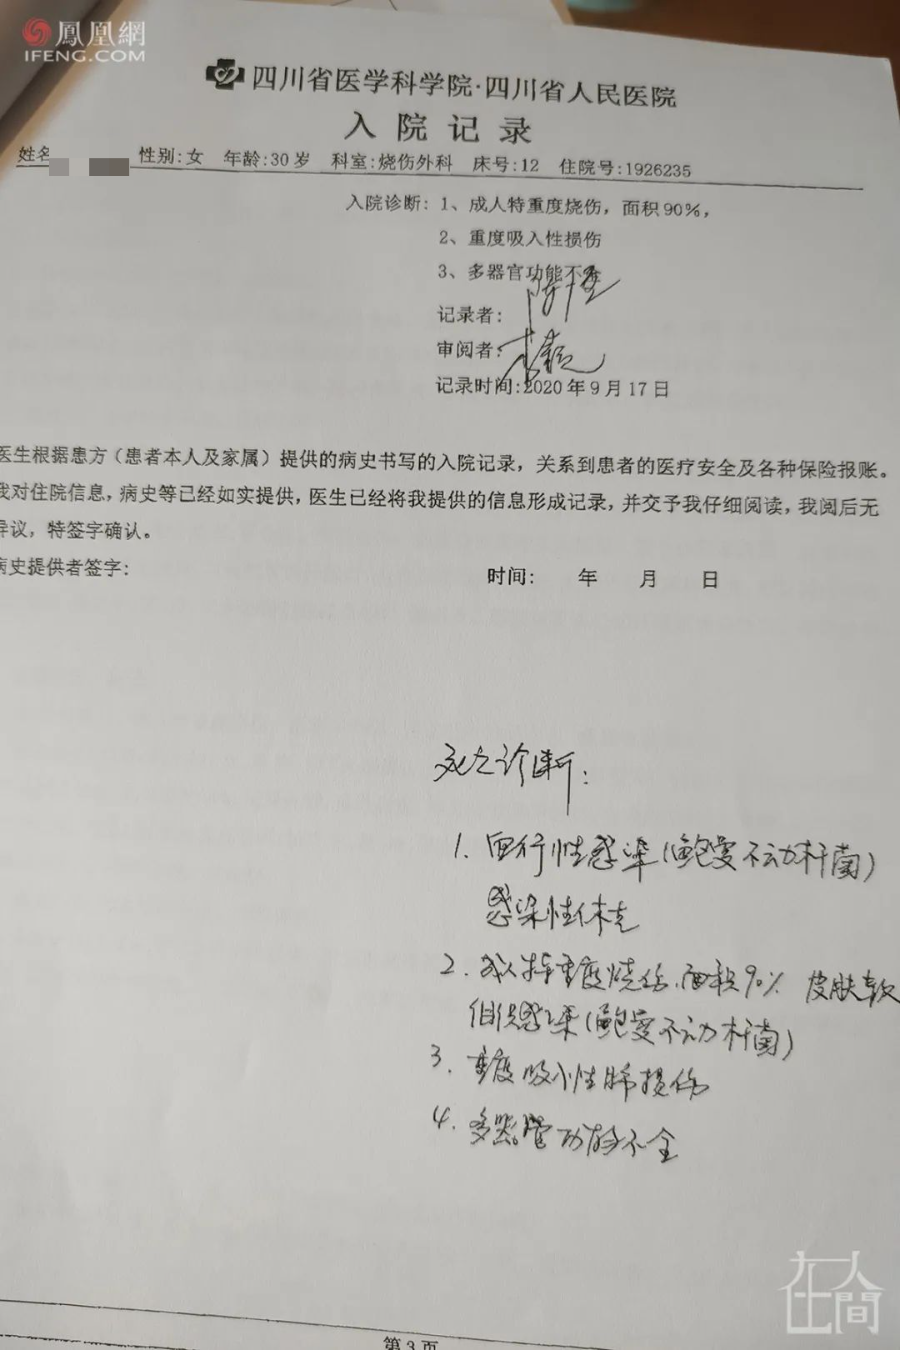 鳳凰網
IFENG.COM
四川省医学科学院·四川省人民医院
入院记录
姓名 性别:女 年龄:30岁 科室:烧伤外科 床号:12 住院号:1926235
入院诊断: 1、成人特重度烧伤，面积90%，
2、重度吸入性损伤
3、多器官功能不全
记录者:
审阅者:
记录时间:2020年9月17日
医生根据患方（患者本人及家属）提供的病史书写的入院记录，关系到患者的医疗安全及各种保险报账。
我对住院信息，病史等已经如实提供，医生已经将我提供的信息形成记录，并交予我仔细阅读，我阅后无
异议，特签字确认。
病史提供者签字:
时间: 年 月 日
死亡诊断:
1. 血行性感染(鲍曼不动杆菌)
感染性休克
2. 成人特重度烧伤.面积90% 皮肤软
组织感染(鲍曼不动杆菌)
3. 重度吸入性肺损伤
4. 多器官功能不全
在人間
第3页